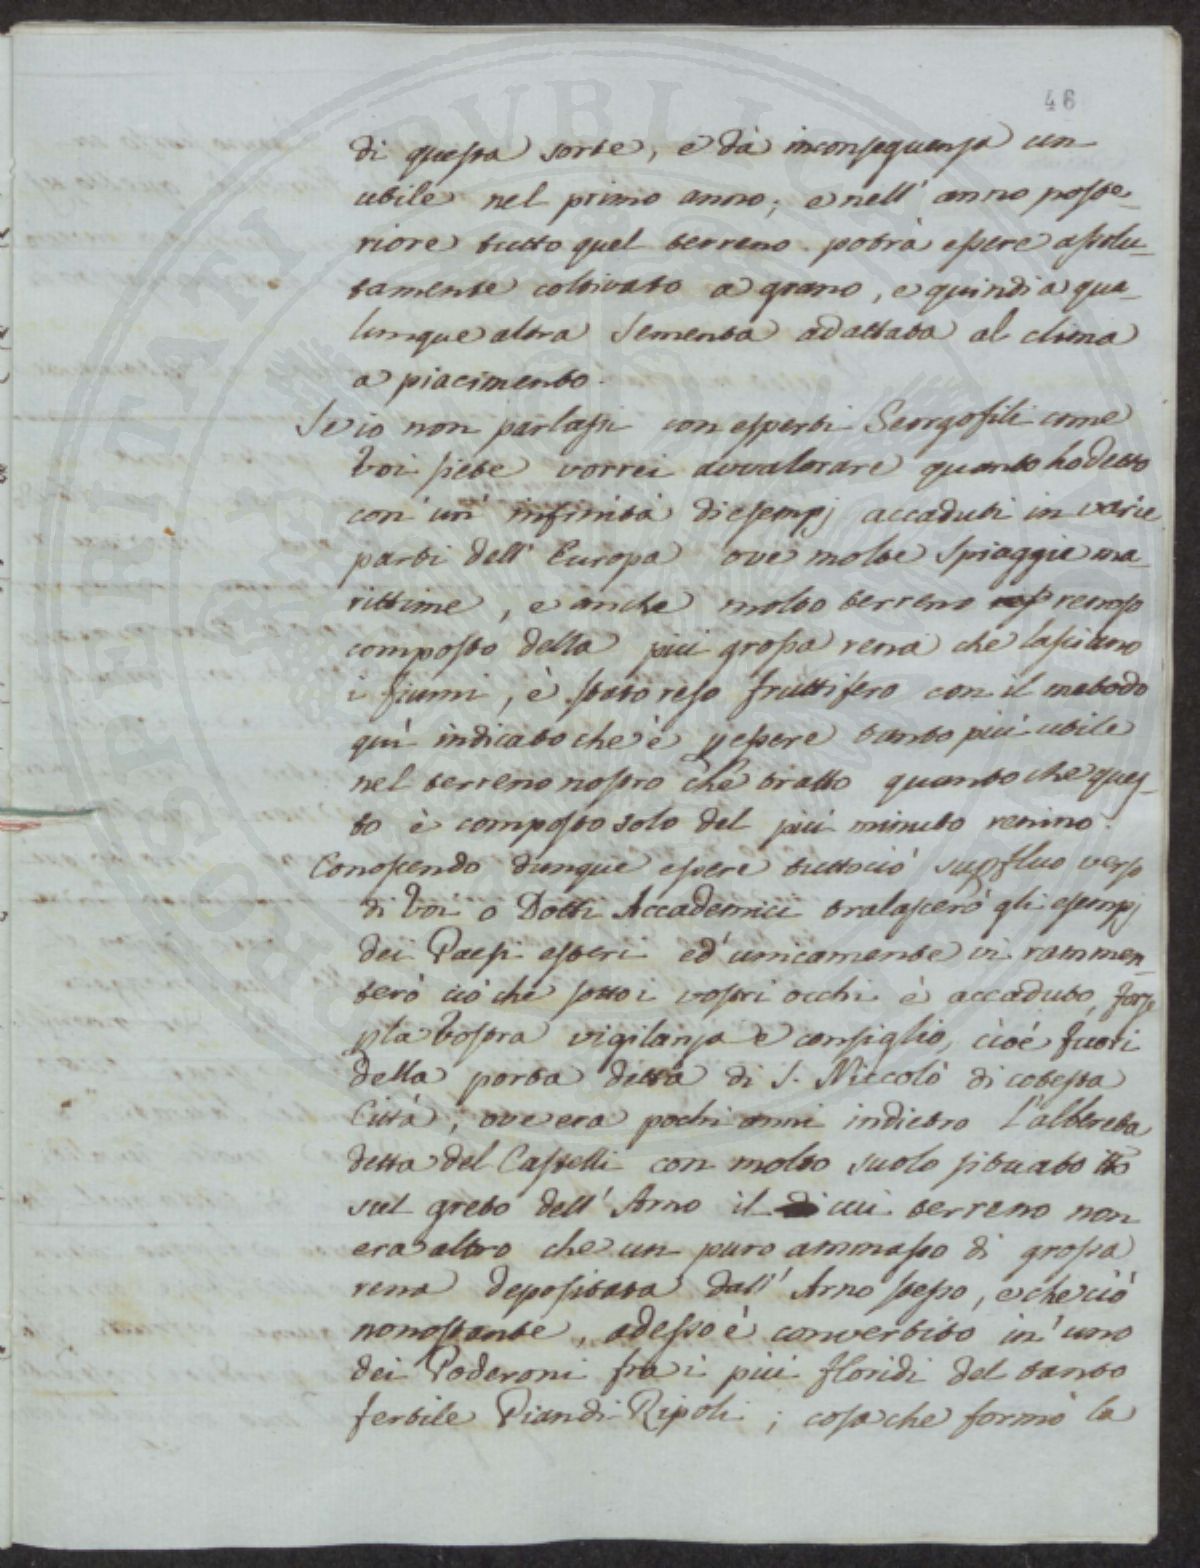 46
di questa sorte, e dà inconseguenza un
utile nel primo anno; e nell' anno poste-
riore tutto quel terreno potrà essere assolu-
tamente coltivato a grano, e quindi a qua-
lunque altra sementa adattata al clima
a piacimento.
Se io non parlassi con esperti Georgofili come
Voi siete vorrei avvalorare quanto ho detto
con un' infinità di esempj accaduti in varie
parti dell' Europa ove molte spiaggie ma-
rittime, e anche molto terreno renoso
composto della più grossa rena che lasciano
i fiumi, è stato reso fruttifero con il metodo
quì indicato che è p essere tanto più utile
nel terreno nostro che tratto quanto che ques-
to è composto solo del più minuto renino.
Conoscendo dunque essere tuttociò supfluo verso
di Voi o Dotti Accademici tralascerò gli esempj
dei Paesi esteri ed' unicamente vi rammen-
terò ciò che sotto i vostri occhi è accaduto, forse
p la Vostra vigilanza e consiglio, cioè fuori
della porta detta di S. Niccolò di cotesta
Città; ove era pochi anni indietro l'Albereta
detta del Castelli con molto suolo situato
sul greto dell' Arno il di cui terreno non
era altro che un puro ammasso di grossa
rena depositata dall' Arno stesso, e che ciò
nonostante, adesso è convertito in' uno
dei Poderoni fra i più floridi del tanto
fertile Pian di Ripoli; cosa che formò la